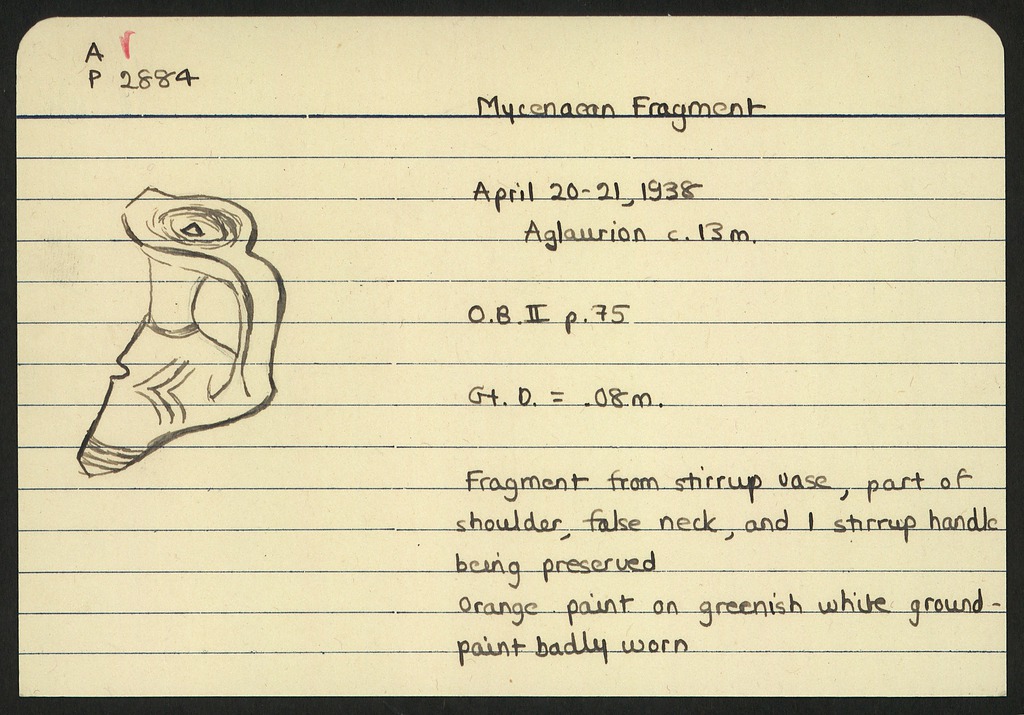 A
P 2884
Mycenaean Fragment
April 20-21, 1938
Aglaurion c. 13 m.
O.B. II p. 75
Gt. D. = .08 m.
Fragment from stirrup vase, part of
shoulder, false neck, and 1 stirrup handle
being preserved
Orange paint on greenish white ground -
paint badly worn